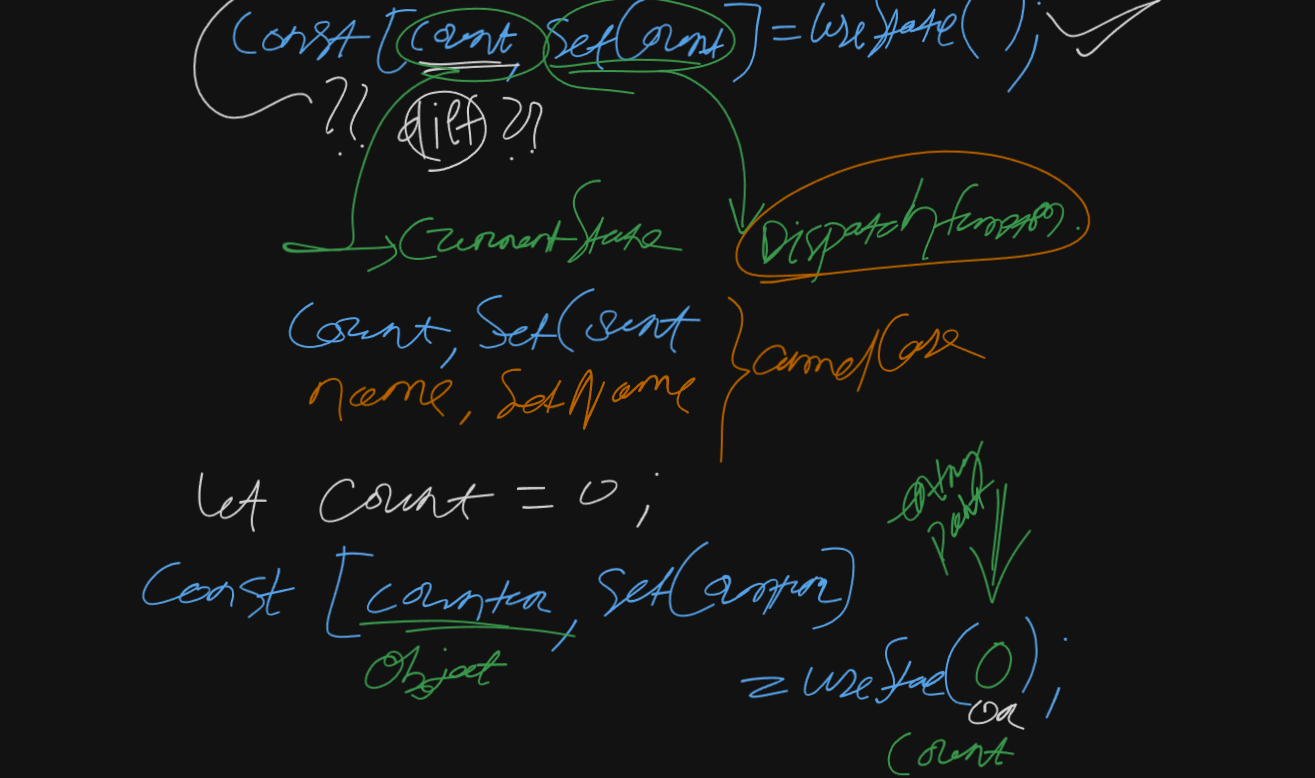 Const [count, setCount] = useState();
?? diff ??
CurrentState Dispatch function.
Count, SetCount
name, SetName
camelCase
let count = 0;
entry point
Const [counter, setCounter]
Object
= useState(0);
OR
Count